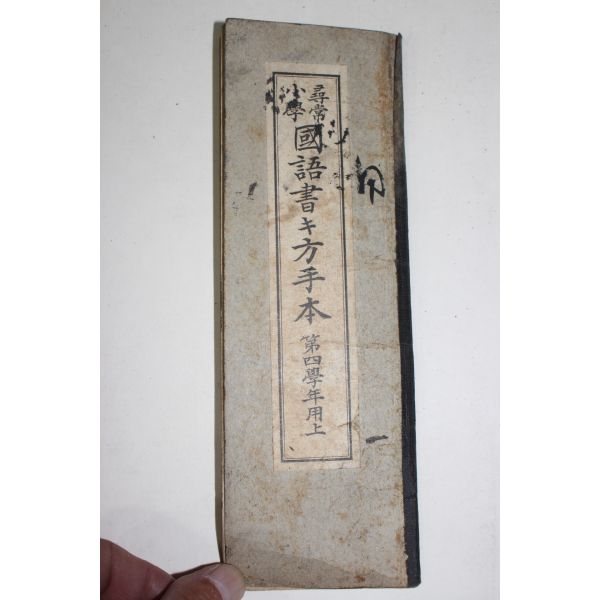 尋常
小學
國語書キ方手本
第四學年用上